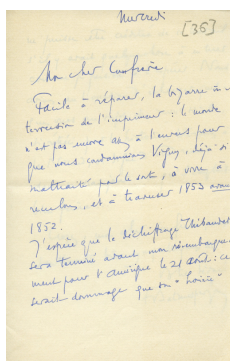 Mercredi
[36]
Mon cher Confrère
Facile à réparer, la bizarre in-
terversion de l'imprimeur : le monde
n'est pas encore à l'envers pour
que nous condamnions Vigny, déjà si
maltraité par le sort, à vivre à
reculons, et à traverser 1853 avant
1852.
J'espère que le déchiffrage Thibaudet
sera terminé avant mon réembarque-
ment pour l'Amérique le 21 août : ce
serait dommage que son "